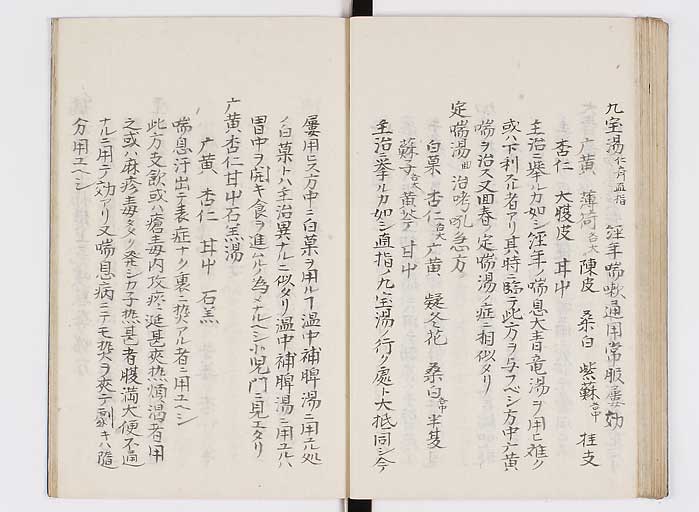 九宝湯 仁斎直指 経年喘嗽通用常服屡効
广黄 薄荷各大 陳皮 桑白 紫蘇各中 桂支
杏仁 大腹皮 甘屮
主治ニ挙ルカ如シ経年ノ喘息大青竜湯ヲ用ヒ難ク
或ハ下利スル者アリ其時ニ臨テ此方ヲ与フベシ方中广黄
喘ヲ治ス又回春ノ定喘湯ノ症ニ相似タリ
定喘湯 回 治哮吼急方
白菓 杏仁各大 广黄 欵冬花 桑白各中 半夏
蘇子各大 黄芩 甘屮
主治ニ挙ルカ如シ直指ノ九宝湯ノ行ク處ト大抵同シ今
屡用ヒス方中ニ白菓ヲ用ルヿ温中補脾湯ニ用ル処
ノ白菓トハ主治異ナルニ似タリ温中補脾湯ニ用ユルハ
胃中ヲ開キ食ヲ進ムルノ為メナルヘシ小児門ニ見エタリ
广黄杏仁甘屮石羔湯
广黄 杏仁 甘屮 石羔
喘息汗出テ表症ナク裏ニ热アル者ニ用ユヘシ
此方支飲或ハ瘡毒内攻痰ニ延甚夾热煩渇者ニ用
之或ハ麻疹毒多ク発シカ子热甚者腹満大便不通
ナルニ用テ効アリ又喘息病ニテモ热ヲ夾テ劇キハ隨
分用ユヘシ